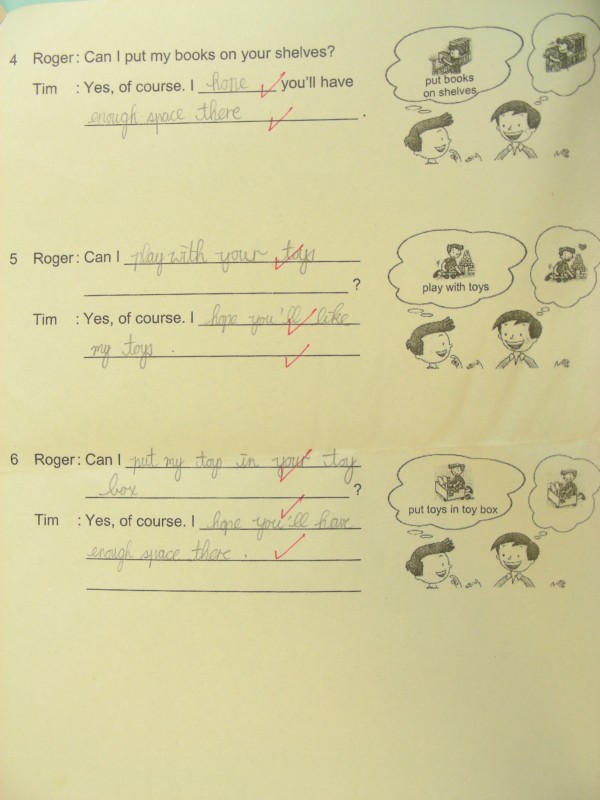 4 Roger: Can I put my books on your shelves?
Tim : Yes, of course. I hope you'll have
enough space there .
put books
on shelves
5 Roger: Can I play with your toys
?
Tim : Yes, of course. I hope you'll like
my toys .
play with toys
6 Roger: Can I put my toys in your toy
box ?
Tim : Yes, of course. I hope you'll have
enough space there .
put toys in toy box